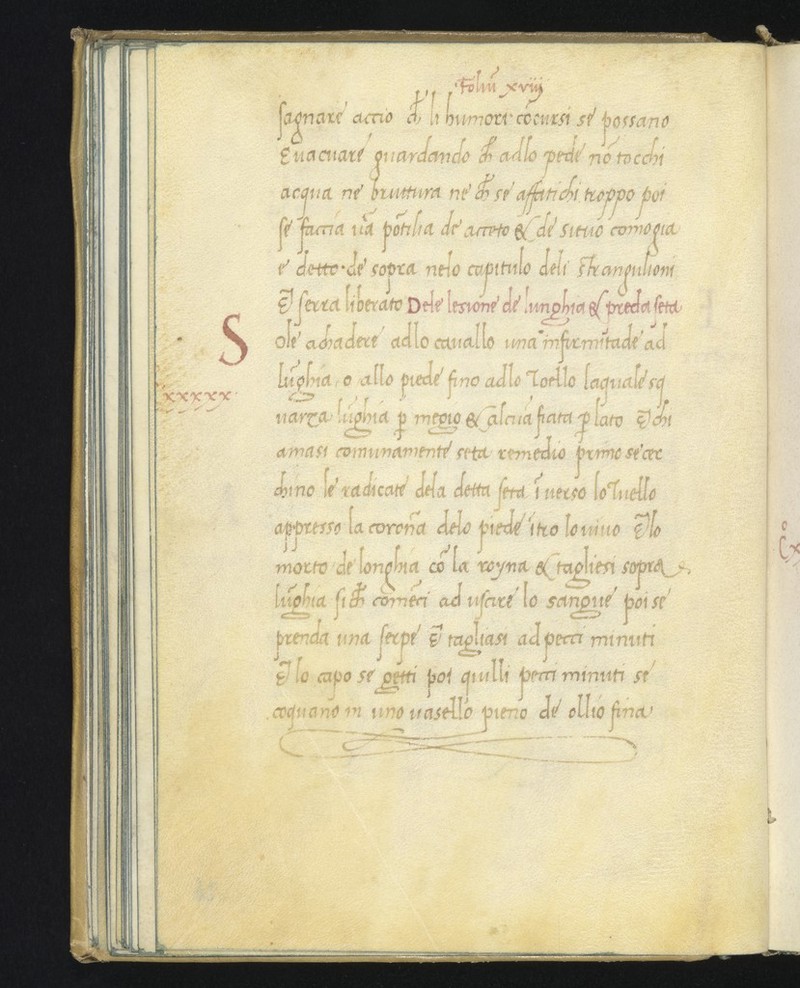 Foliũ xviij
sagnare accio ch̃ li humori cõcursi se possano
Euacuare guardando ch̃ adlo pede nõ tocchi
acqua ne bruttura ne ch̃ se affatichi troppo poi
se faccia uã põtilia de acceto & de situo comogia
e detto de sopra nelo capitulo deli strangulioni
Et̃ serra liberato Dele lesione de lunghia & preda seta
Sole achadere adlo cauallo una infirmitade ad
xxxxx
lũghia o allo piede fino adlo Toello laquale sq
uarza lũghia p̱ megio & alcũa fiata p̱ lato Et̃ chi
amasi comunamente seta remedio primo se cer
chino le radicate dela detta seta ĩuerso lo Tuello
appresso la coroña delo piede ĩtro lo uiuo Et̃ lo
morto de longhia cõ la royna & tagliesi sopra
lũghia sich̃ comẽci ad uscire lo sangue poi se
prenda una serpe Et̃ tagliasi ad pecci minuti
Et̃ lo capo se getti poi quilli pecci minuti se
coquano in uno uasello pieno de ollio fina